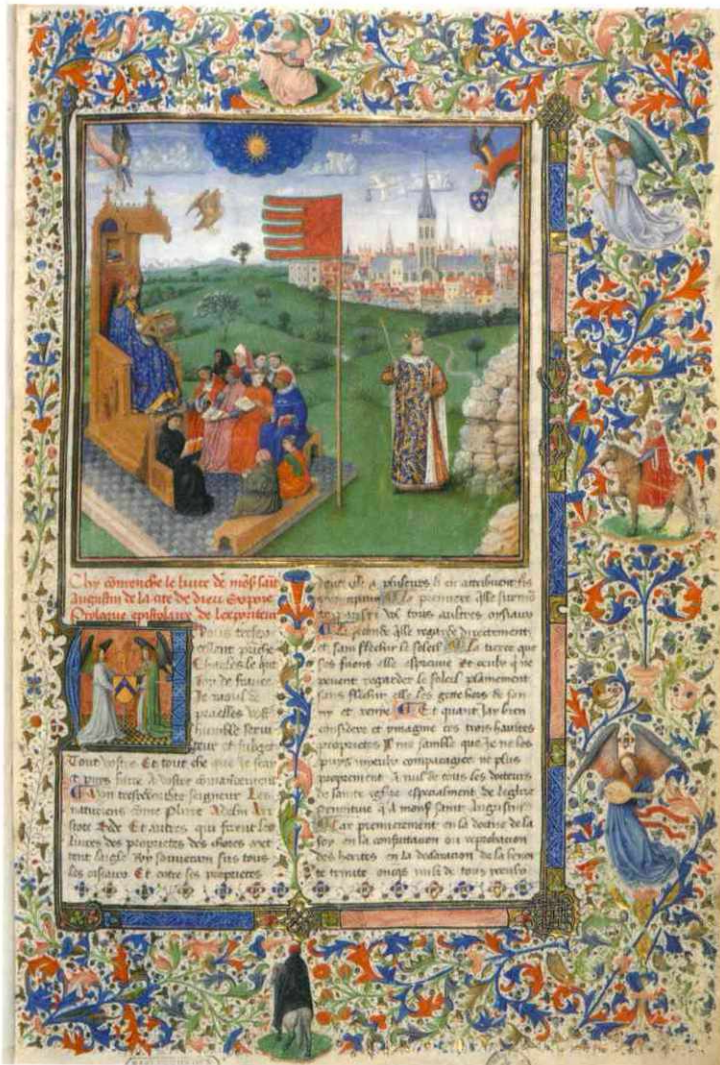 Chy comenche le livre de mons saint
Augustin de la cite de dieu Et pre
Prologue epistolaire de lexpositeur
Vous tresex
cellent prince
Charles le quit
Roy de france
Je raoul de
praelles vostre
humble servi
teur et subget
Tout vostre Et tout che que je scay
et puys faire a vostre comandement
Mon tresredoubte seigneur Les
naturiens come Pline Adelin Aris
tote Bede Et autres qui firent les
livres des proprietes des choses
tent laigle Roy souverain sus tous
les oiseaux Et entre ses proprietes
dont elle a pluseurs li en attribuent
La premiere quelle surmo
vol tous aultres oiseaux
La seconde quelle regarde directement
et sans flechir le soleil La tierce que
ses fions elle espreuve et ceulx qui ne
peuent regarder le soleil plainement
sans flechir elle les gette hors de son
ny et renye Et quant jay bien
considere et ymagine ces trois haultes
proprietes Il me samble que je ne les
puys mieulx comparagier ne plus
proprement a nul de tous les docteurs
de sainte eglise especialment de leglise
primitive qua mons saint Augustin
Car premierement en la doctrine de la
foy en la confutation ou reprobation
des herites en la declaration de la benoi
te trinite onques nulz de tous